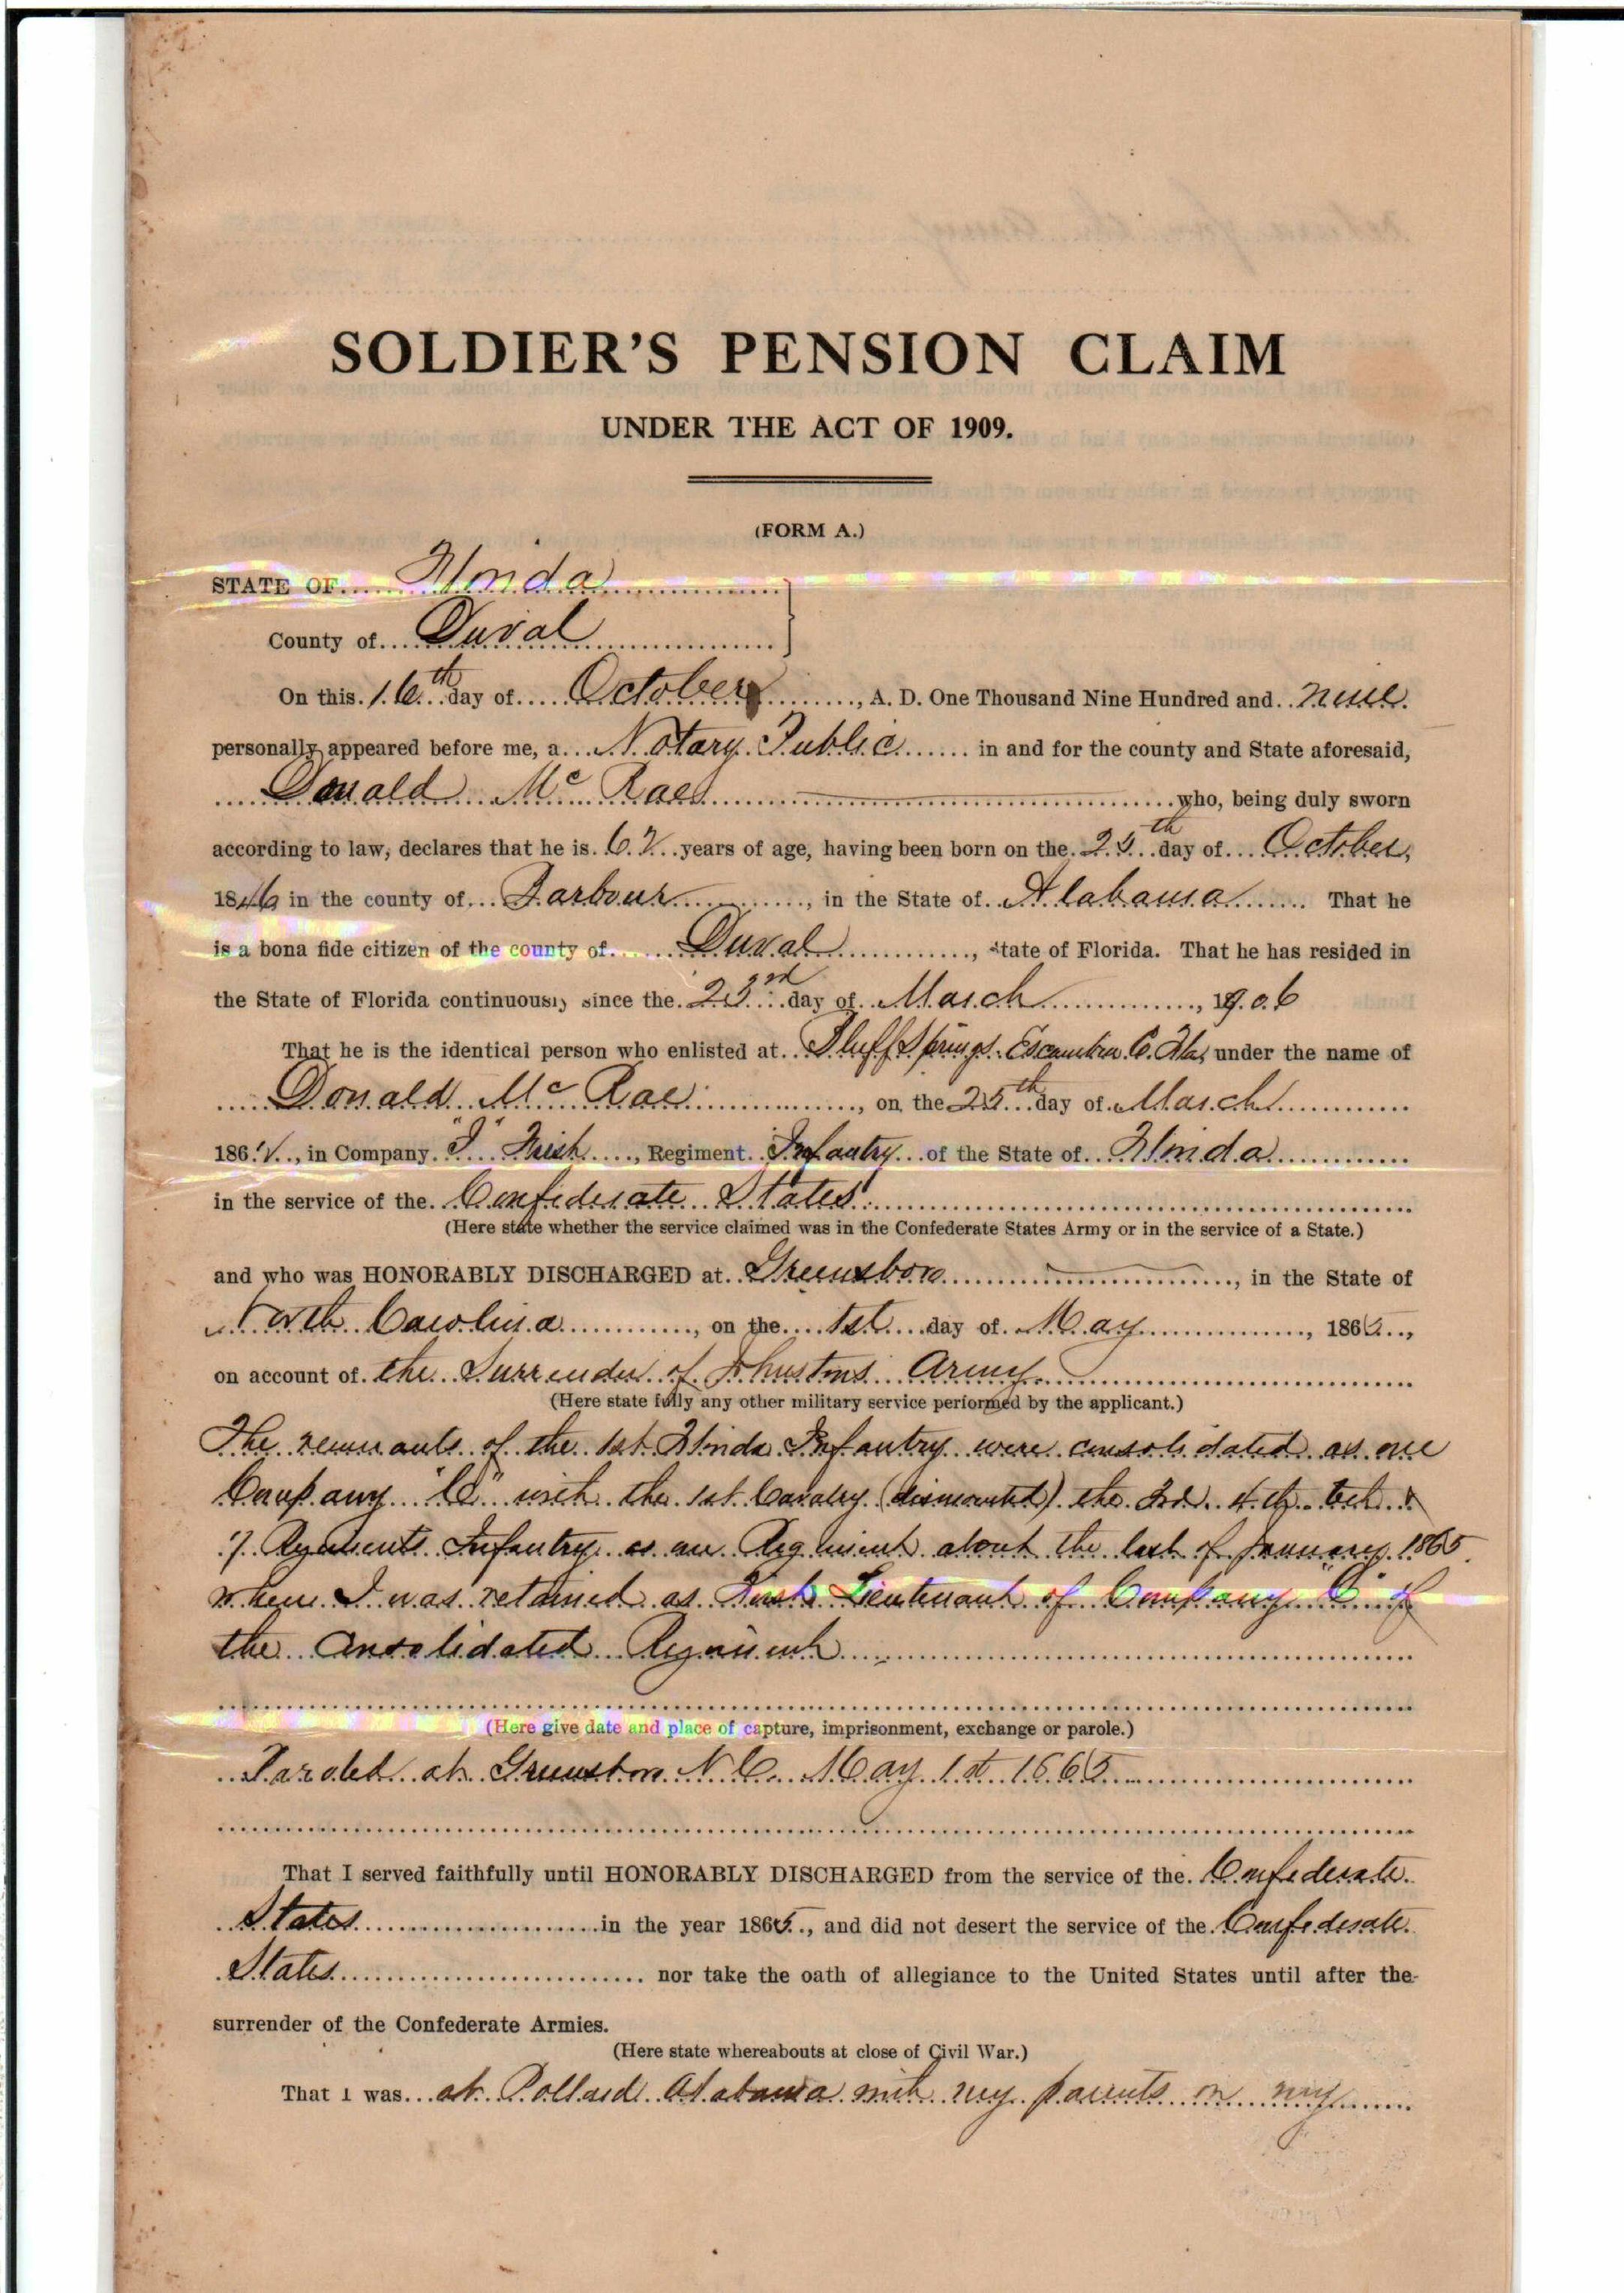 SOLDIER'S PENSION CLAIM
UNDER THE ACT OF 1909.
(FORM A.)
STATE OF Florida
County of Duval
On this 16th day of October, A. D. One Thousand Nine Hundred and nine
personally appeared before me, a Notary Public in and for the county and State aforesaid,
Donald McRae who, being duly sworn
according to law, declares that he is 62 years of age, having been born on the 25th day of October,
1846 in the county of Barbour, in the State of Alabama That he
is a bona fide citizen of the county of Duval, State of Florida. That he has resided in
the State of Florida continuously since the 23rd day of March, 1906
That he is the identical person who enlisted at Bluff Springs Escambia Co. Fla, under the name of
Donald McRae, on the 25th day of March
186, in Company "I" First, Regiment Infantry of the State of Florida
in the service of the Confederate States
(Here state whether the service claimed was in the Confederate States Army or in the service of a State.)
and who was HONORABLY DISCHARGED at Greensboro, in the State of
North Carolina, on the 1st day of May, 1865,
on account of the Surrender of Johnstons Army
(Here state fully any other military service performed by the applicant.)
The remnants of the 1st Florida Infantry were consolidated as one
Company "C" with the 1st Cavalry (dismounted) the 3rd 4th 6th &
7 Regiments Infantry as one Regiment about the last of January 1865
when I was retained as First Lieutenant of Company "C" of
the Consolidated Regiment
(Here give date and place of capture, imprisonment, exchange or parole.)
Paroled at Greensboro N.C. May 1st 1865
That I served faithfully until HONORABLY DISCHARGED from the service of the Confederate
States in the year 1865, and did not desert the service of the Confederate
States nor take the oath of allegiance to the United States until after the
surrender of the Confederate Armies.
(Here state whereabouts at close of Civil War.)
That I was at Pollard Alabama with my parents on my